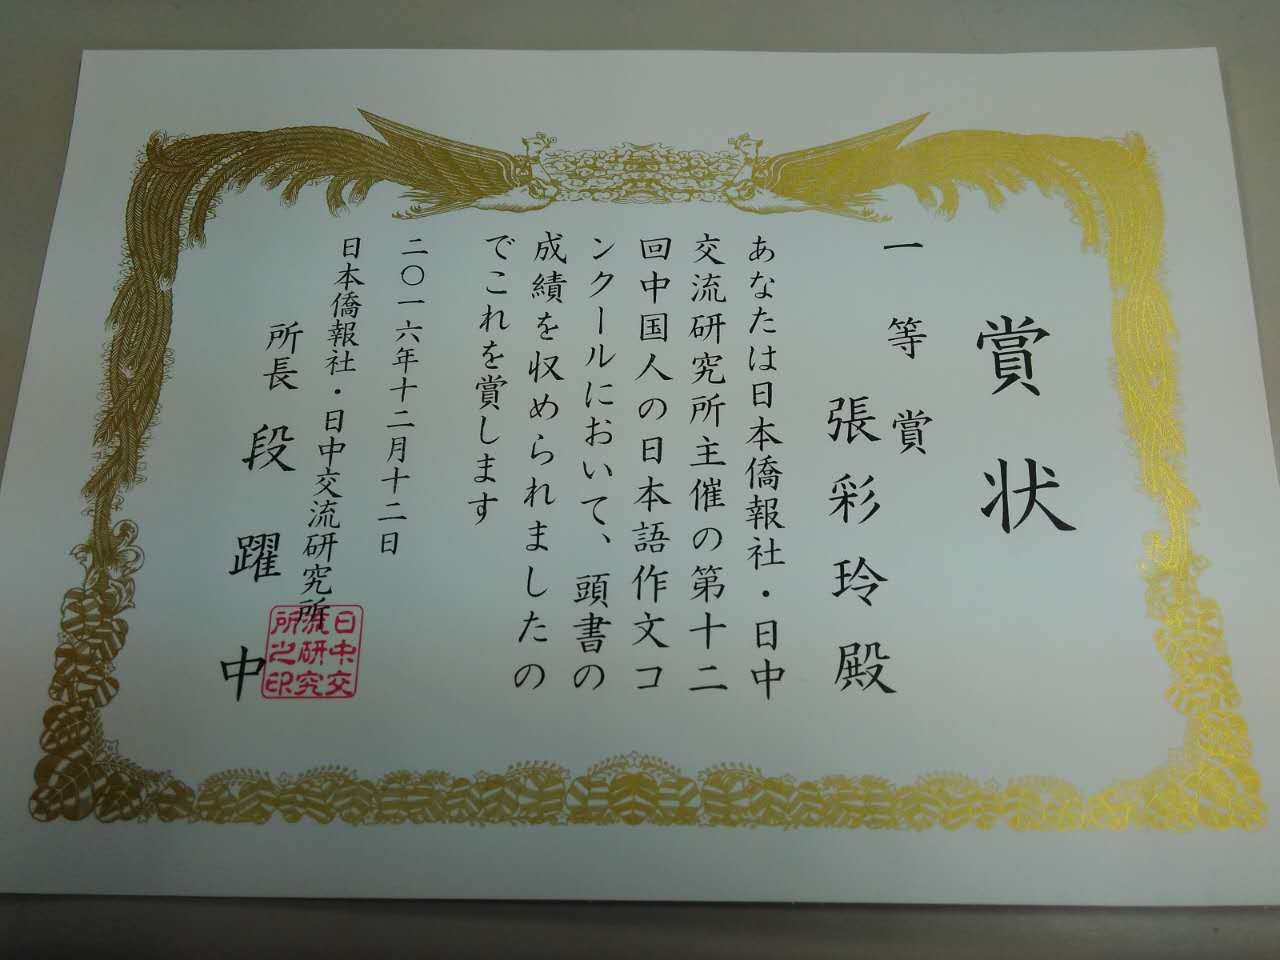 賞状
一等賞
張彩玲殿
あなたは日本僑報社・日中
交流研究所主催の第十二
回中国人の日本語作文コ
ンクールにおいて、頭書の
成績を収められましたの
でこれを賞します
二〇一六年十二月十二日
日本僑報社・日中交流研究所
所長 段躍中
日中交
流研究
所之印